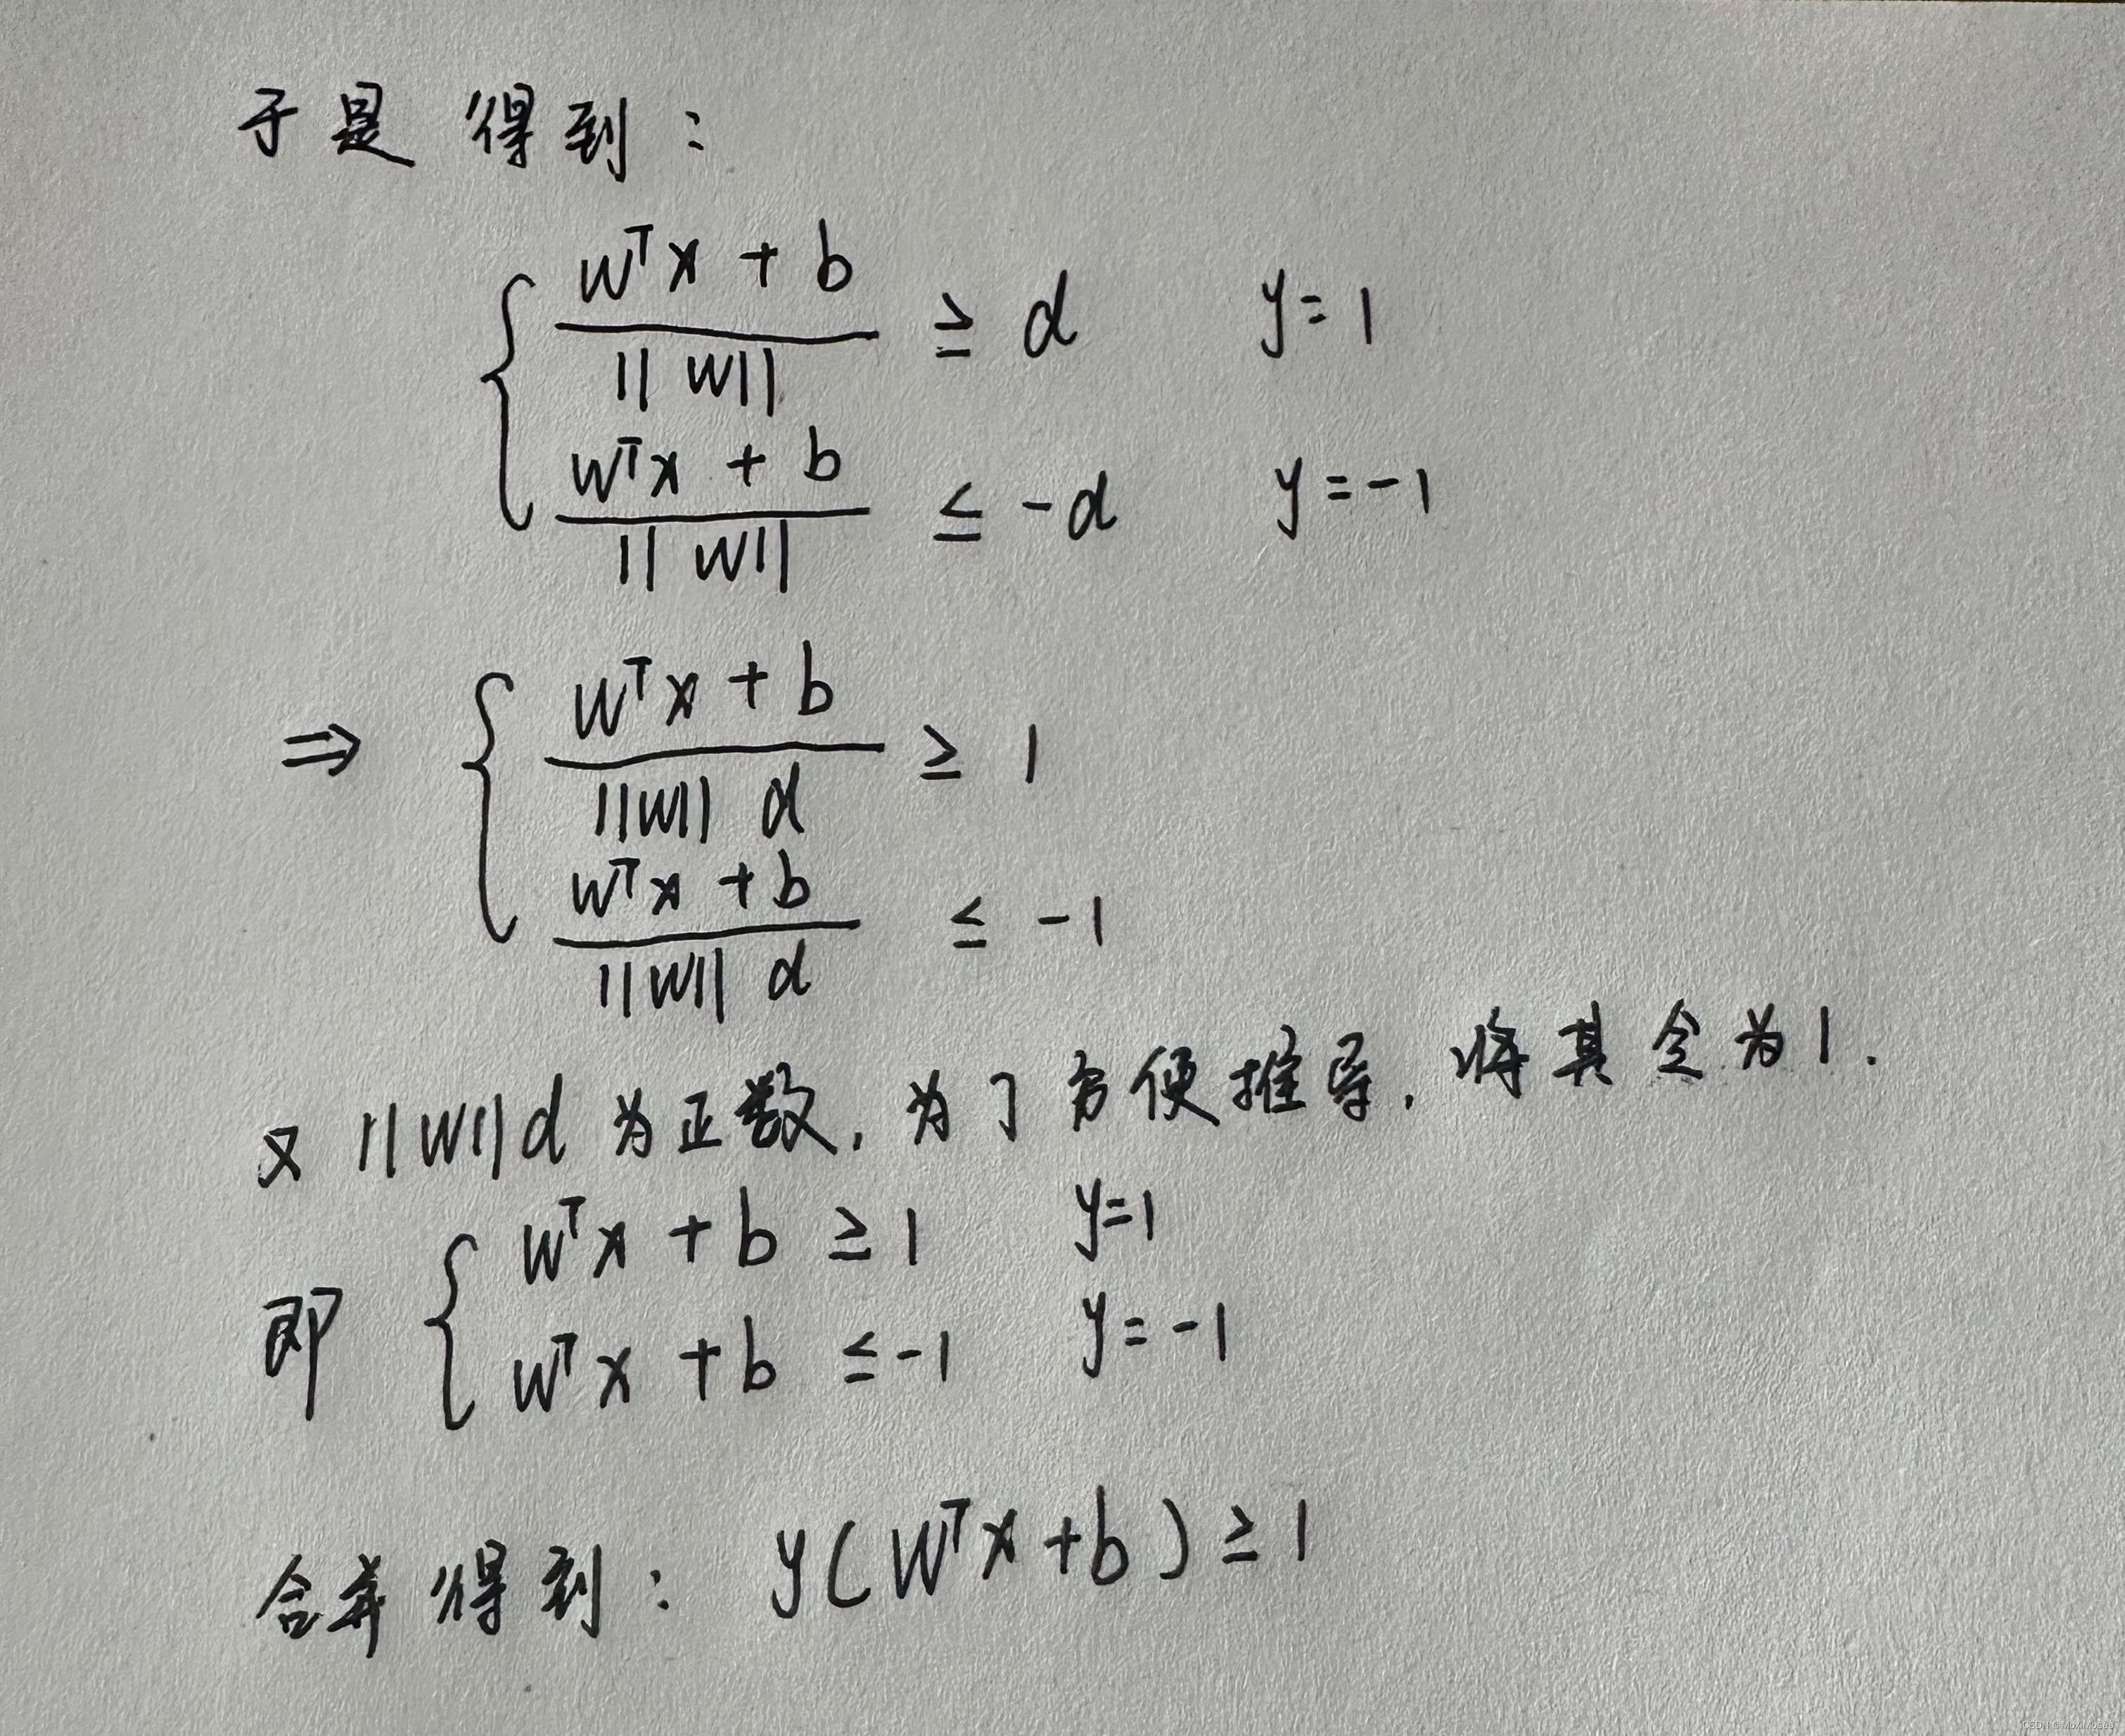 于是得到:
{ (w^T x + b) / ||w|| ≥ d  y = 1
(w^T x + b) / ||w|| ≤ -d  y = -1
⇒ { (w^T x + b) / (||w|| d) ≥ 1
(w^T x + b) / (||w|| d) ≤ -1
又 ||w||d 为正数, 为了方便推导, 将其令为1.
即 { w^T x + b ≥ 1  y=1
w^T x + b ≤ -1  y = -1
合并得到: y(w^T x + b) ≥ 1
CSDN @MoxiMoses